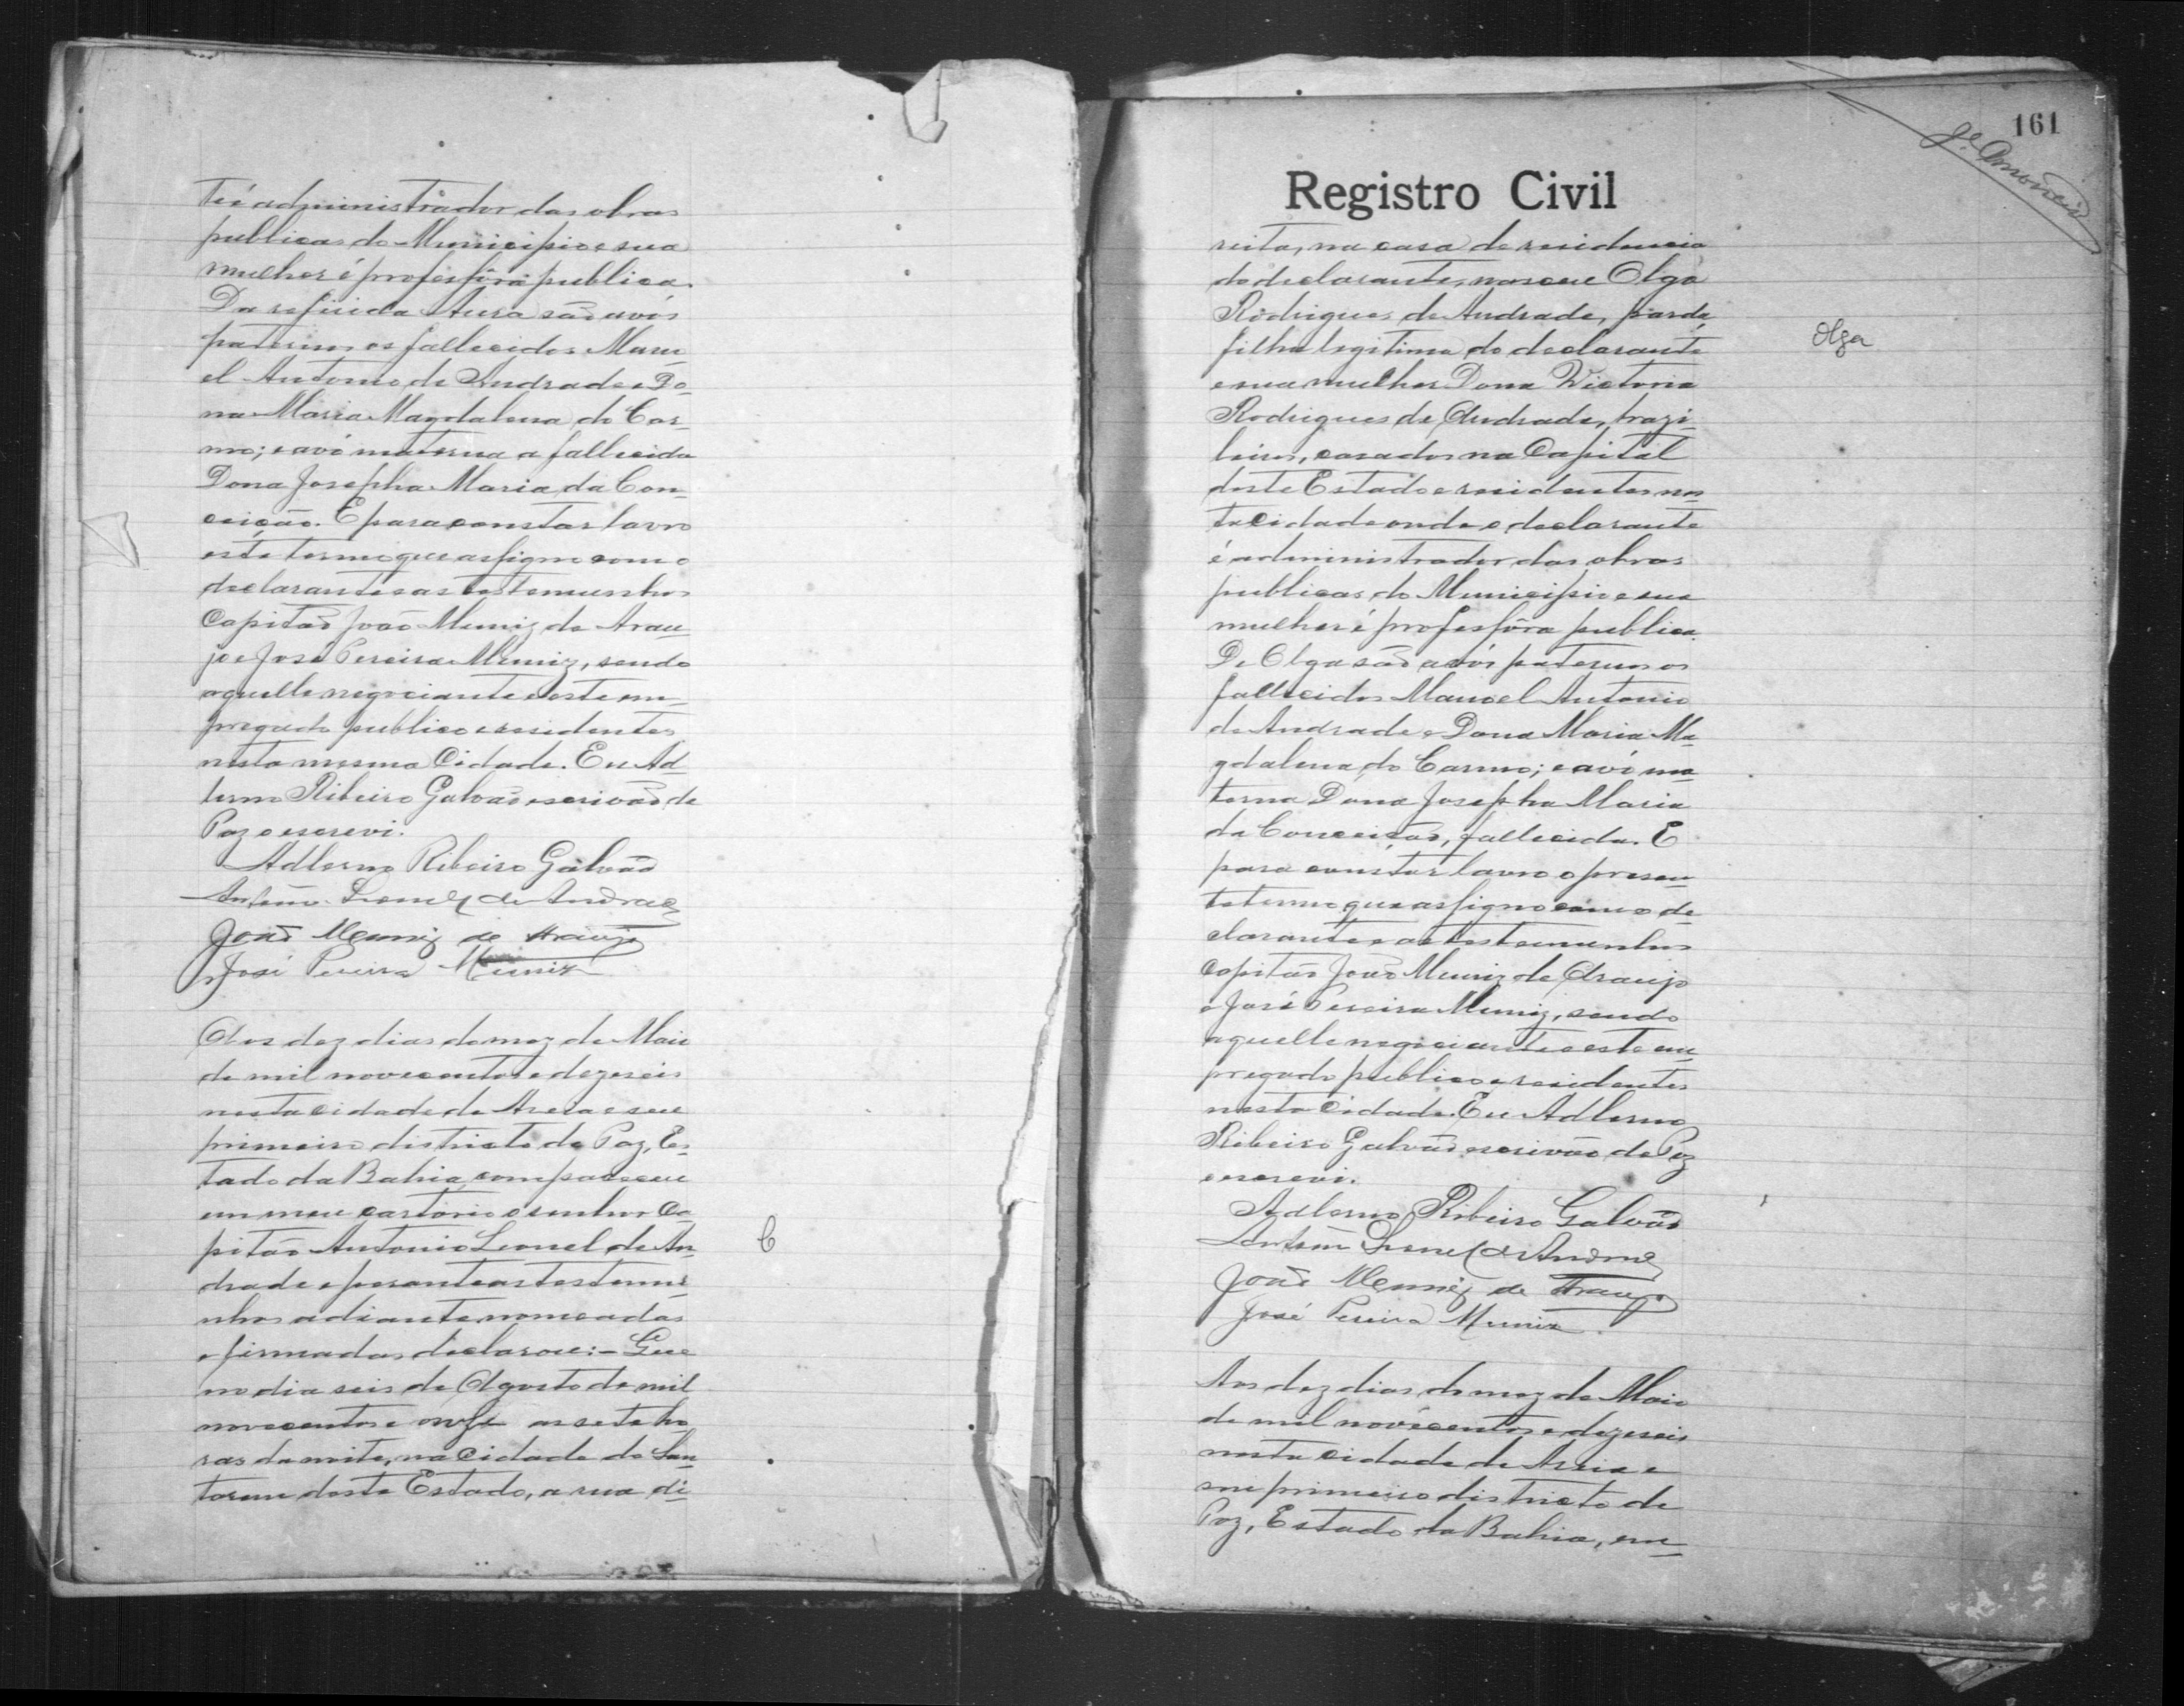 te é administrador das obras
publicas do Municipio e sua
mulher é professôra publica.
Da referida Aura são avós
paternos os fallecidos Mano
el Antonio de Andrade e Do-
na Maria Magdalena do Car-
mo; e avó materna a fallecida
Dona Josepha Maria da Con-
ceição. E para constar lavro
este termo que assigno com o
declarante e as testemunhas
Capitão João Muniz de Arau-
jo e José Pereira Muniz, sendo
aquelle negociante e este em-
pregado publico e residentes
nesta mesma Cidade. Eu Ad-
lerno Ribeiro Galvão escrivão de
Paz o escrevi.
Adlerno Ribeiro Galvão
Antonio Leonel de Andrade
João Muniz de Araujo
José Pereira Muniz
Aos dez dias do mez de Maio
de mil novecentos e dezeseis
nesta cidade de Areia e seu
primeiro districto de Paz, Es-
tado da Bahia, compareceu
em meu cartório o senhor Ca-
pitão Antonio Leonel de An-
drade e perante as testemu-
nhas adiante nomeadas
e firmadas declarou:- Que
no dia seis de Agosto de mil
novecentos e onze as sete ho-
ras da noite, na Cidade de San-
tarem deste Estado, a rua di-
C
161
Registro Civil
reita, na casa de residencia
do declarante, nasceu Olga
Rodrigues de Andrade, parda,
filha legitima do declarante
e sua mulher Dona Victoria
Rodrigues de Andrade, brazi-
leiros, casados na Capital
deste Estado e residentes nes-
ta Cidade onde o declarante
é administrador das obras
publicas do Municipio e sua
mulher é professôra publica.
De Olga são avós paternos os
fallecidos Manoel Antonio
de Andrade e Dona Maria Ma-
gdalena do Carmo; e avó ma-
terna Dona Josepha Maria
da Conceição, fallecida. E
para constar lavro o presen-
te termo que assigno com o de-
clarante e as testemunhas
Capitão João Muniz de Araujo
e José Pereira Muniz, sendo
aquelle negociante e este em-
pregado publico e residentes
nesta Cidade. Eu Adlerno
Ribeiro Galvão escrivão de Paz
o escrevi.
Adlerno Ribeiro Galvão
Antonio Leonel de Andrade
João Muniz de Araujo
José Pereira Muniz
Aos dez dias do mez de Maio
de mil novecentos e dezeseis
nesta cidade de Areia e
seu primeiro districto de
Paz, Estado da Bahia, em-
Olga